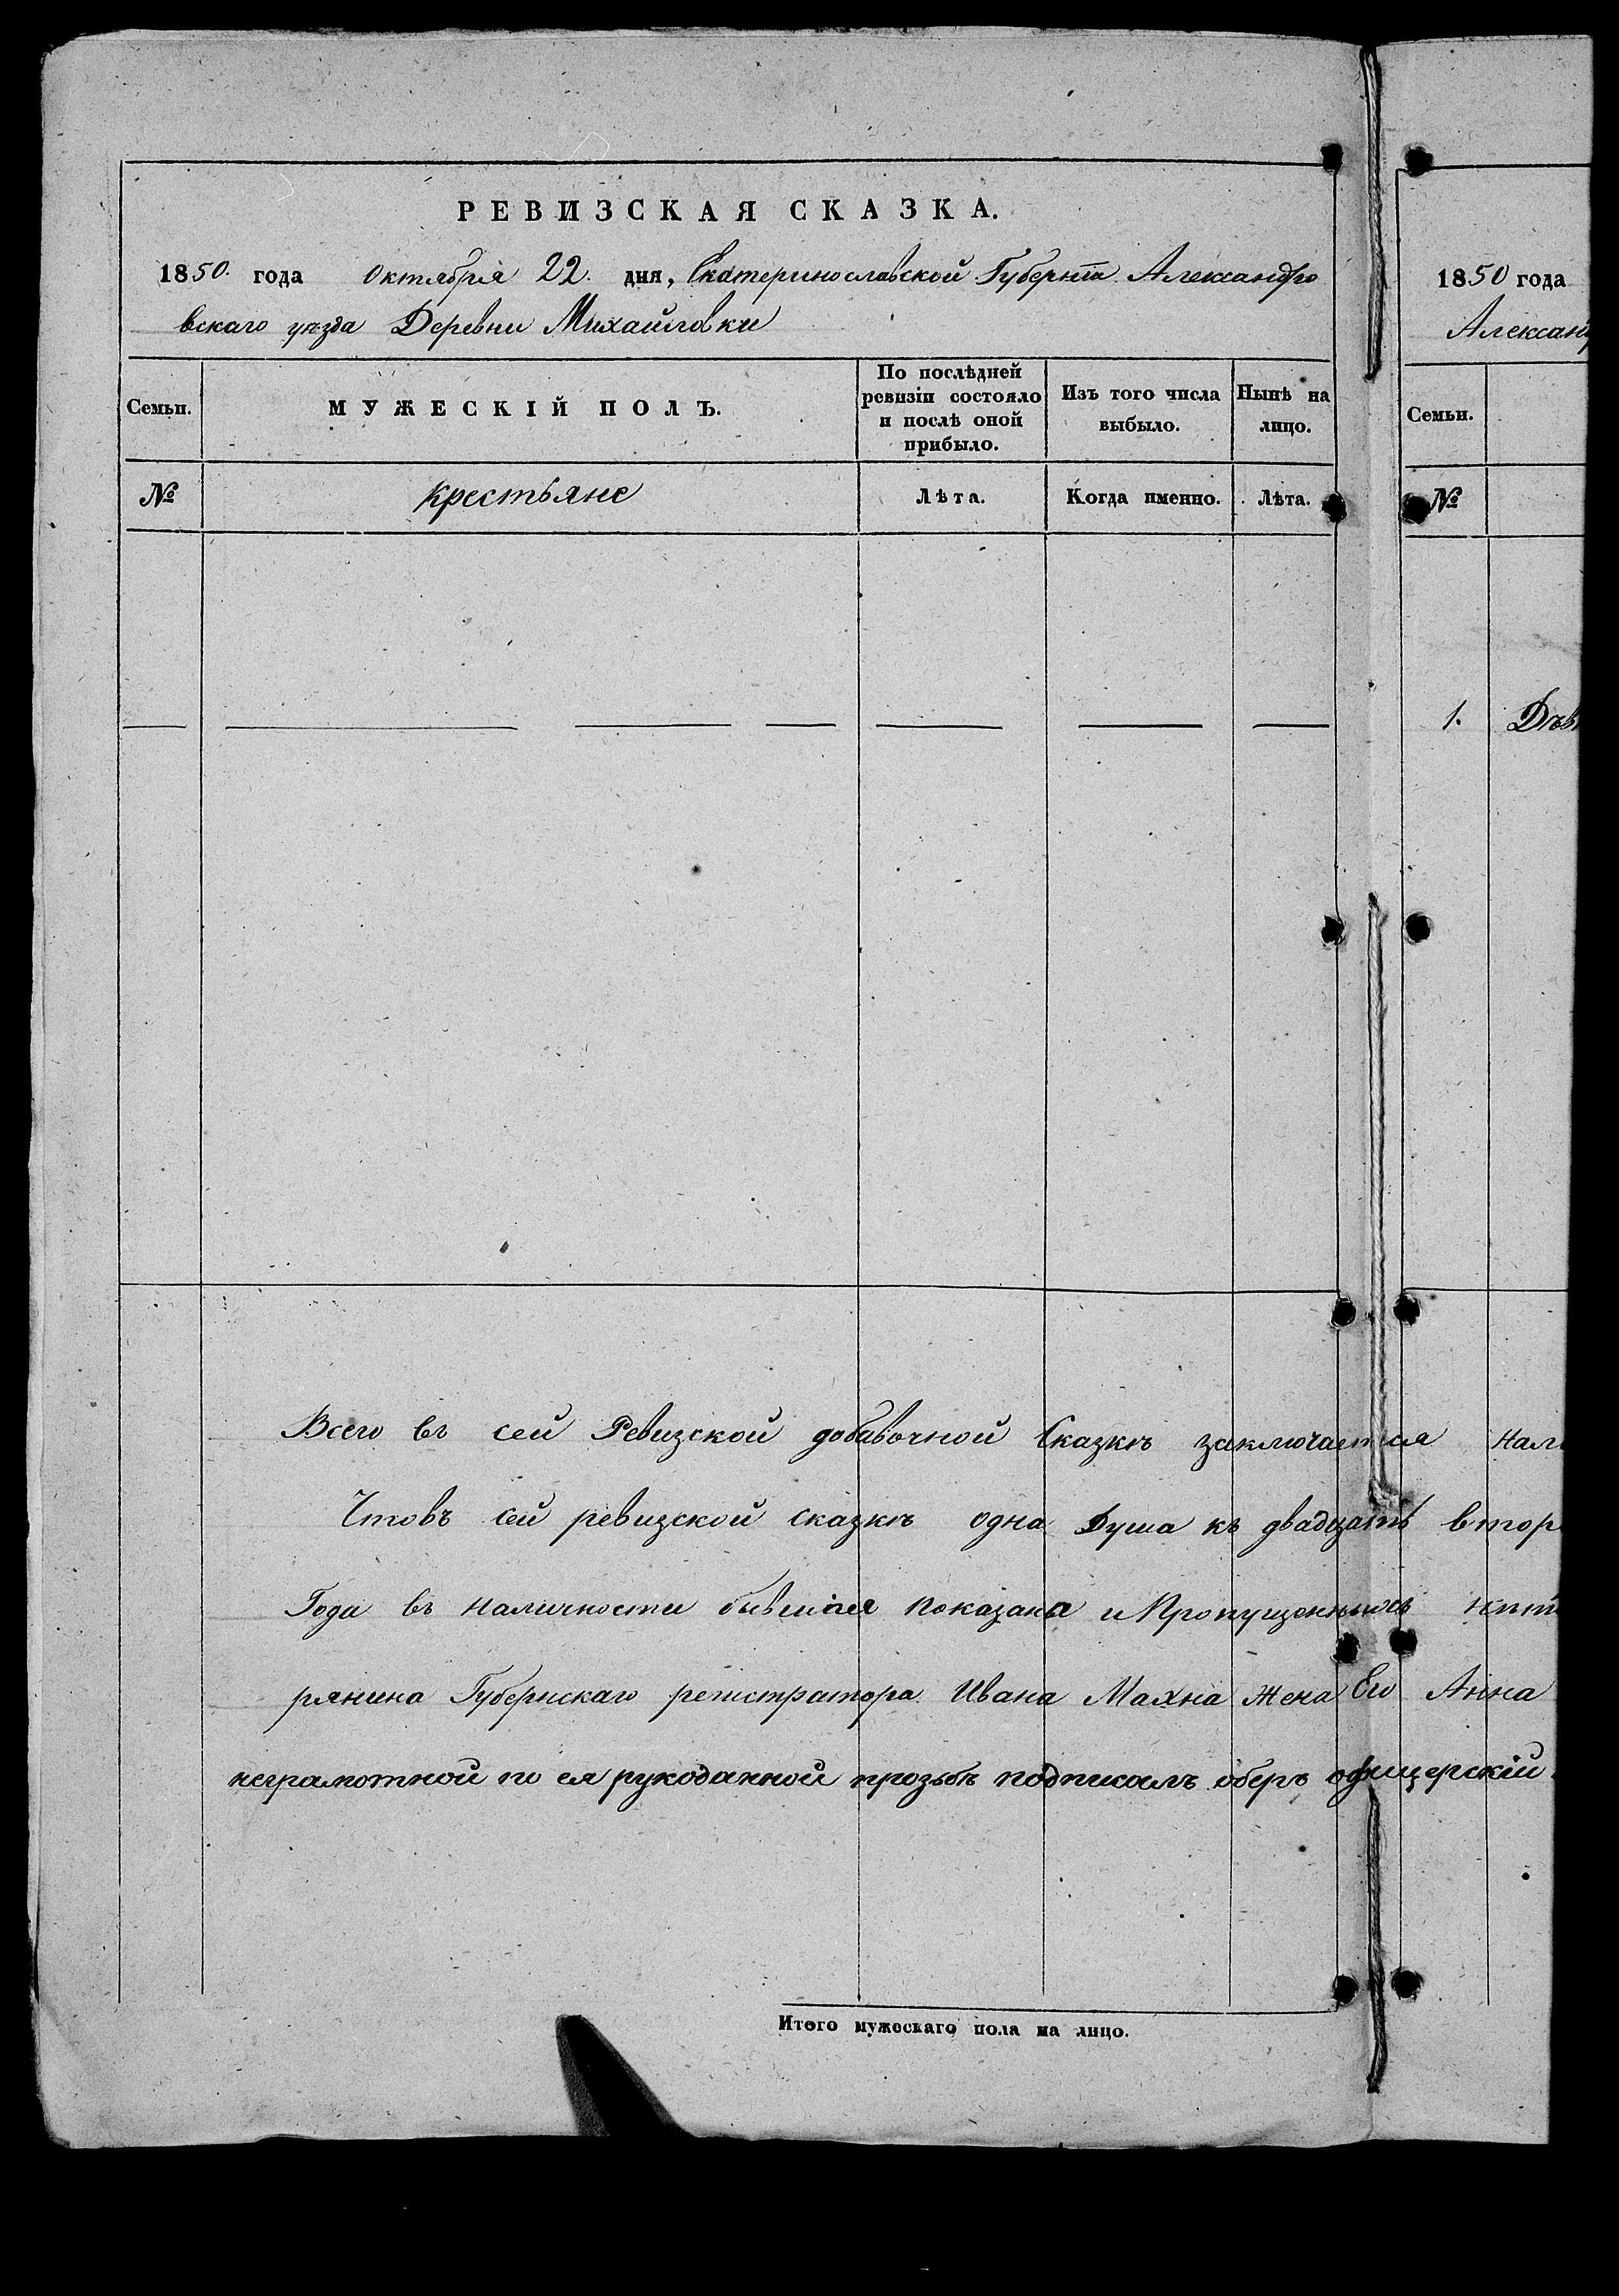 РЕВИЗСКАЯ СКАЗКА.
1850. года Октября 22. дня, Екатеринославской Губерніи Александро
вскаго уѣзда Деревни Михайловки
Семьи.
МУЖЕСКІЙ ПОЛЪ.
По послѣдней
ревизіи состояло
и послѣ оной
прибыло.
Изъ того числа
выбыло.
Нынѣ на
лицо.
№
крестьяне
Лѣта.
Когда именно.
Лѣта.
Всего въ сей Ревизской добавочной Сказкѣ заключается
Чтовъ сей ревизской сказкѣ одна Душа къ двадцать втор
Года въ наличности бывшая показана и Пропущенныхъ
рянина Губернскаго регистратора Ивана Махна Жена Его Анна
неграмотной по ея рукоданной прозьбѣ подписалъ оберъ офицерскій
Итого мужескаго пола на лицо.
1850 года
Александ
Семьи.
№
1. Дѣв